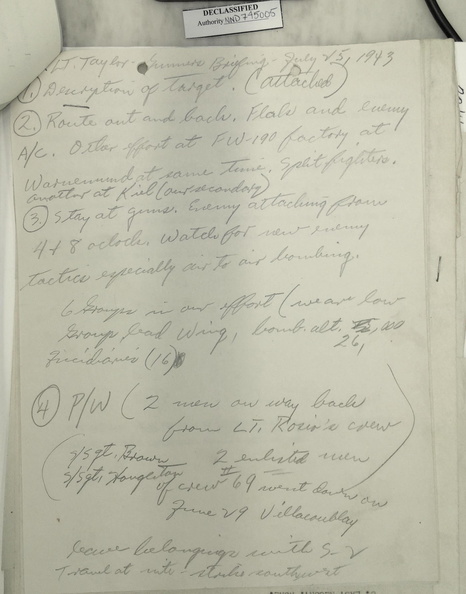 DECLASSIFIED
Authority NND745005
LT. Taylor - Gunners Briefing - July 25, 1943
1. Decription of target. (attached)
2. Route out and back. Flak and enemy
A/C. Other effort at FW-190 factory at
Warnemund at same time. Split fighters.
another at Kiel (our secondary)
3. Stay at guns. Enemy attacking from
4 & 8 oclock. Watch for new enemy
tactics especially air to air bombing.
6 Groups in our effort (we are low
Group lead Wing, bomb. alt.
26,
Incidiaries (16)
4 P/W (2 men on way back
from LT. Rosio's crew
S/Sgt. Brown 2 enlisted men
S/Sgt. of crew #69 went down on
June 29 Villacoublay
leave belongings with S-2
Travel at nite - strike southwest